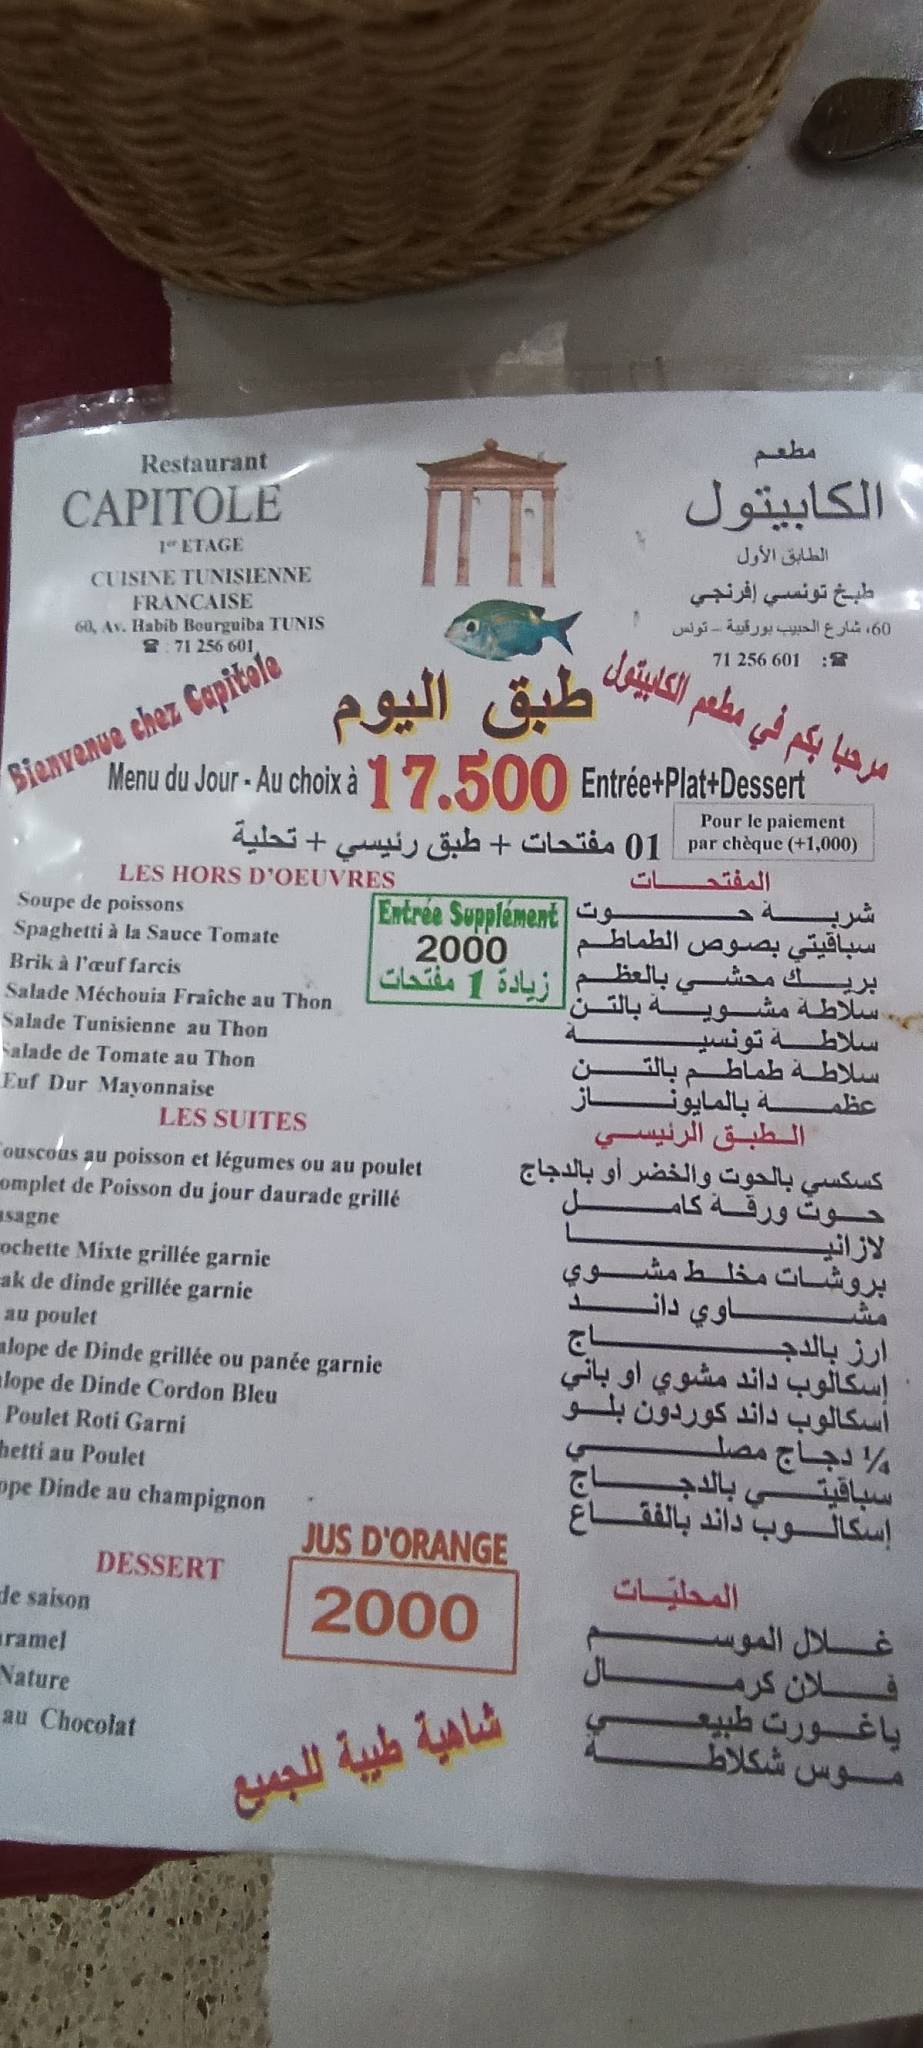 Restaurant
CAPITOLE
1er ETAGE
CUISINE TUNISIENNE
FRANCAISE
60, Av. Habib Bourguiba TUNIS
☎ : 71 256 601
مطعم
الكابيتول
الطابق الأول
طبخ تونسي إفرنجي
60، شارع الحبيب بورقيبة - تونس
71 256 601 :☎
Bienvenue chez Capitole
مرحبا بكم في مطعم الكابيتول
طبق اليوم
Menu du Jour - Au choix à 17.500 Entrée+Plat+Dessert
01 مفتحات + طبق رئيسي + تحلية
Pour le paiement
par chèque (+1,000)
LES HORS D'OEUVRES
Soupe de poissons
Spaghetti à la Sauce Tomate
Brik à l'œuf farcis
Salade Méchouia Fraîche au Thon
Salade Tunisienne au Thon
Salade de Tomate au Thon
Euf Dur Mayonnaise
Entrée Supplément
2000
زيادة 1 مفتحات
المفتحات
شربة حوت
سباقيتي بصوص الطماطم
بريك محشي بالعظم
سلاطة مشوية بالتن
سلاطة تونسية
سلاطة طماطم بالتن
عظمة بالمايوناز
LES SUITES
ouscous au poisson et légumes ou au poulet
omplet de Poisson du jour daurade grillé
sagne
ochette Mixte grillée garnie
ak de dinde grillée garnie
au poulet
alope de Dinde grillée ou panée garnie
lope de Dinde Cordon Bleu
Poulet Roti Garni
hetti au Poulet
ope Dinde au champignon
الطبق الرئيسي
كسكسي بالحوت والخضر أو بالدجاج
حوت ورقة كامل
لازانيا
بروشات مخلط مشوي
مشاوي داند
ارز بالدجاج
إسكالوب داند مشوي او باني
اسكالوب داند كوردون بلو
¼ دجاج مصلي
سباقيتي بالدجاج
إسكالوب داند بالفقاع
DESSERT
de saison
aramel
Nature
au Chocolat
JUS D'ORANGE
2000
المحليّات
غلال الموسم
فلان كرمال
ياغورت طبيعي
موس شكلاطة
شاهية طيبة للجميع